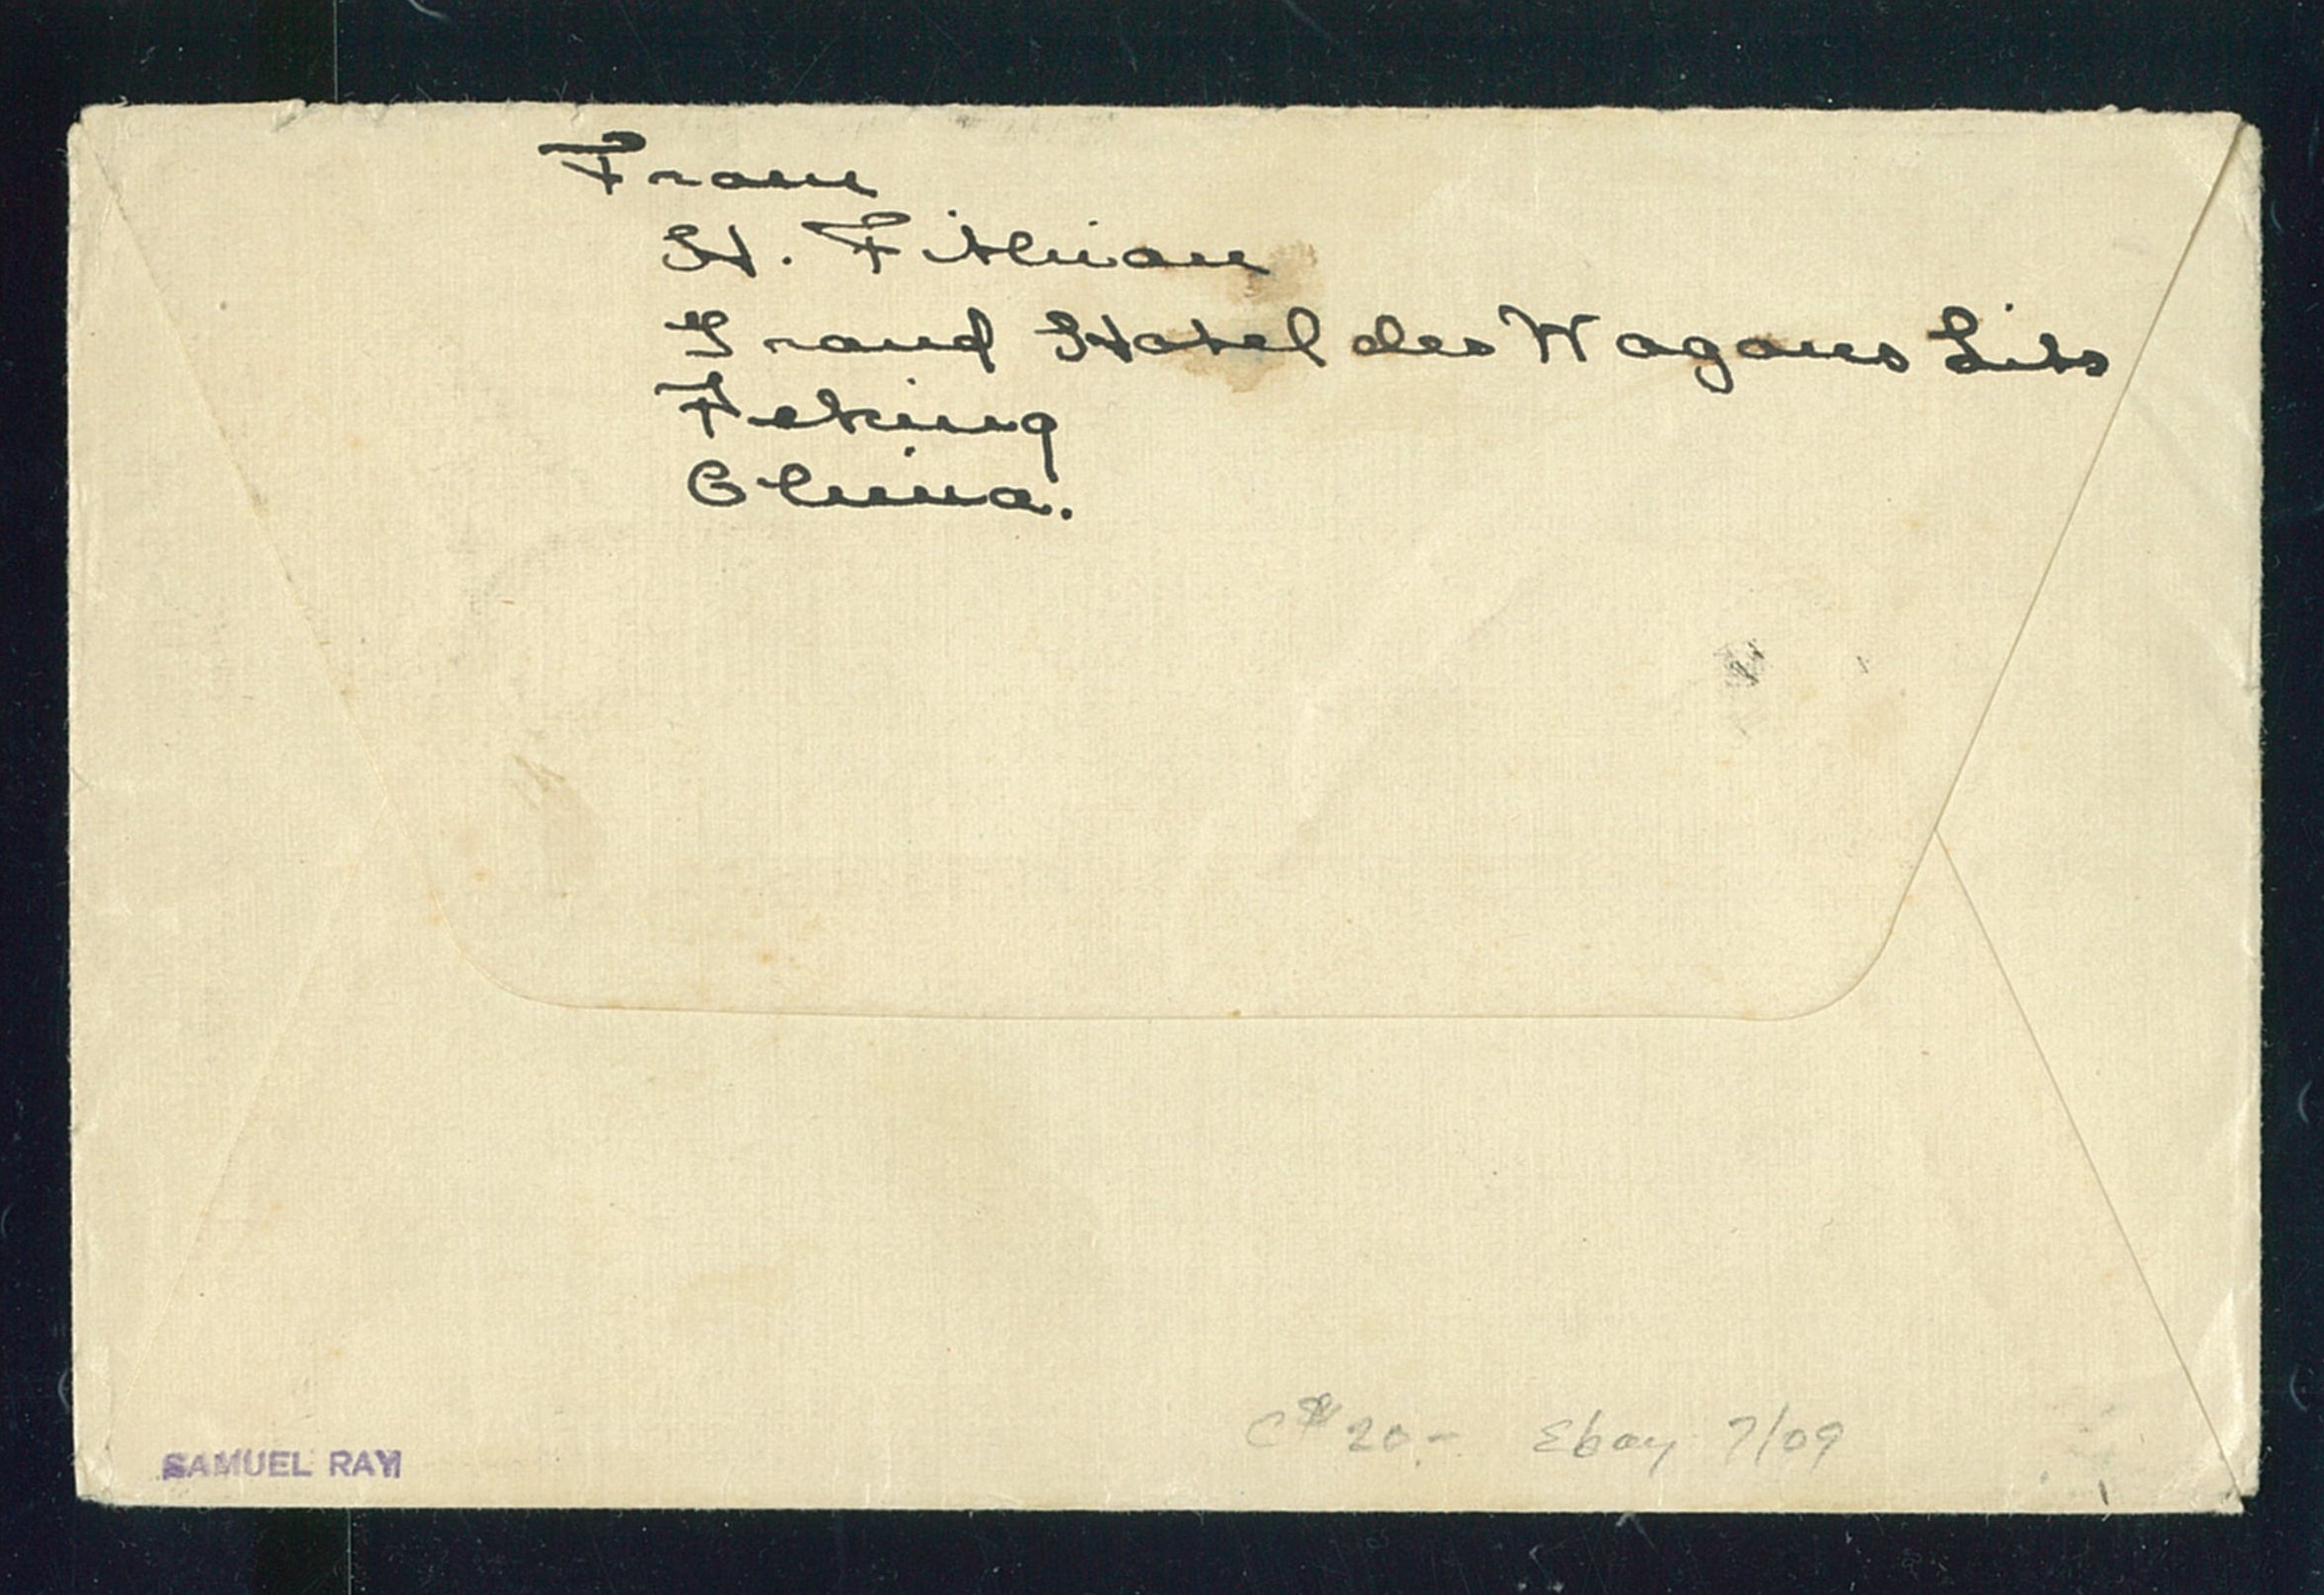 From
H. Fithian
Grand Hotel des Wagons Lits
Peking
China.
SAMUEL RAY
20.- Ebay 7/09